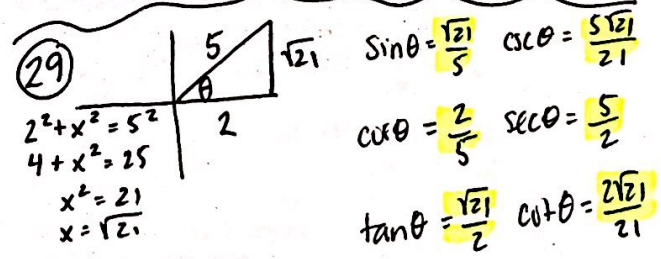 29
5
√21
θ
2
2² + x² = 5²
4 + x² = 25
x² = 21
x = √21
sinθ = √21/5 cscθ = 5√21/21
cosθ = 2/5 secθ = 5/2
tanθ = √21/2 cotθ = 2√21/21